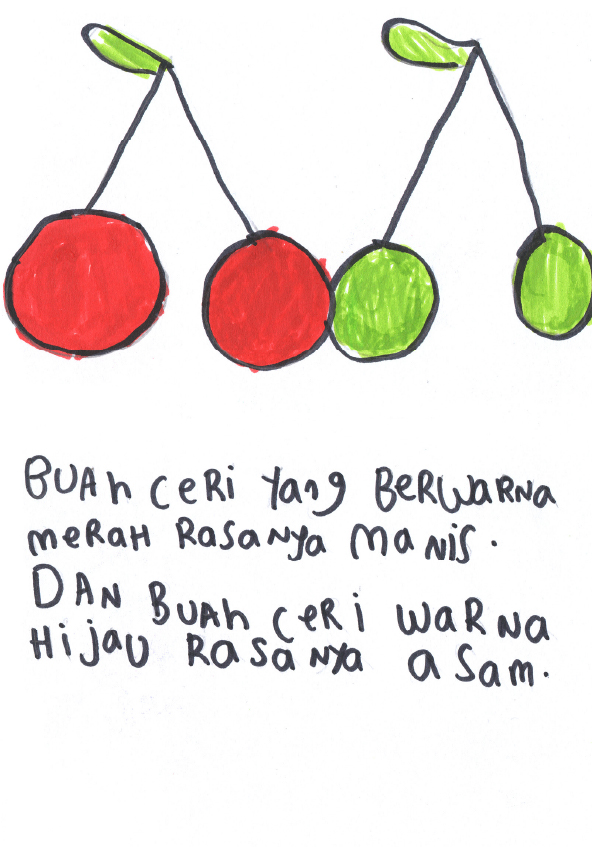 BUAh CeRi Yang BeRWaRNa
meRaH RasaNYa MaNis.
DAN BUAh CeRi WaRNa
HijaU RasaNYa asam.